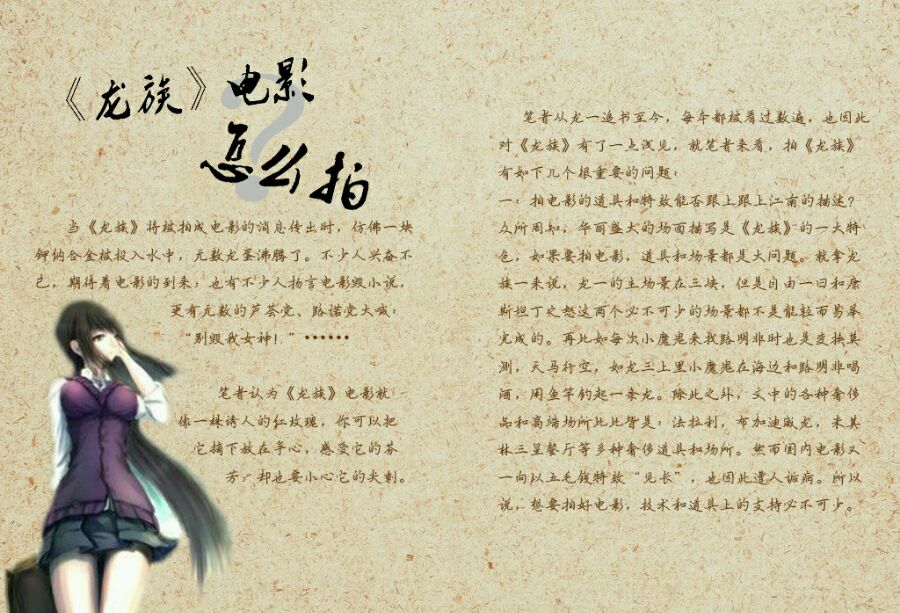 《龙族》电影
怎么拍
?
当《龙族》将被拍成电影的消息传出时，仿佛一块
钾钠合金被投入水中，无数龙蛋沸腾了。不少人兴奋不
已，期待着电影的到来；也有不少人扬言电影毁小说，
更有无数的芦荟党、路诺党大喊：
“别毁我女神！”······
笔者认为《龙族》电影就
像一株诱人的红玫瑰，你可以把
它摘下放在手心，感受它的芬
芳，却也要小心它的尖刺。
笔者从龙一追书至今，每本都被看过数遍，也因此
对《龙族》有了一点浅见，就笔者来看，拍《龙族》
有如下几个很重要的问题：
一：拍电影的道具和特效能否跟上跟上江南的描述？
众所周知，华丽盛大的场面描写是《龙族》的一大特
色，如果要拍电影，道具和场景都是大问题。就拿龙
族一来说，龙一的主场景在三峡，但是自由一日和康
斯坦丁之怒这两个必不可少的场景都不是能轻而易举
完成的。再比如每次小魔鬼来找路明非时也是变换莫
测，天马行空，如龙三上里小魔鬼在海边和路明非喝
酒，用鱼竿钓起一条龙。除此之外，文中的各种奢侈
品和高端场所比比皆是：法拉利，布加迪威龙，米其
林三星餐厅等多种奢侈道具和场所。然而国内电影又
一向以五毛钱特效“见长”，也因此遭人诟病。所以
说，想要拍好电影，技术和道具上的支持必不可少。